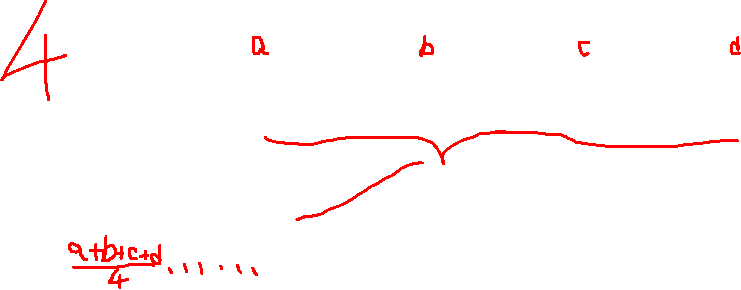 4 a b c d
a+b+c+d
4 ........